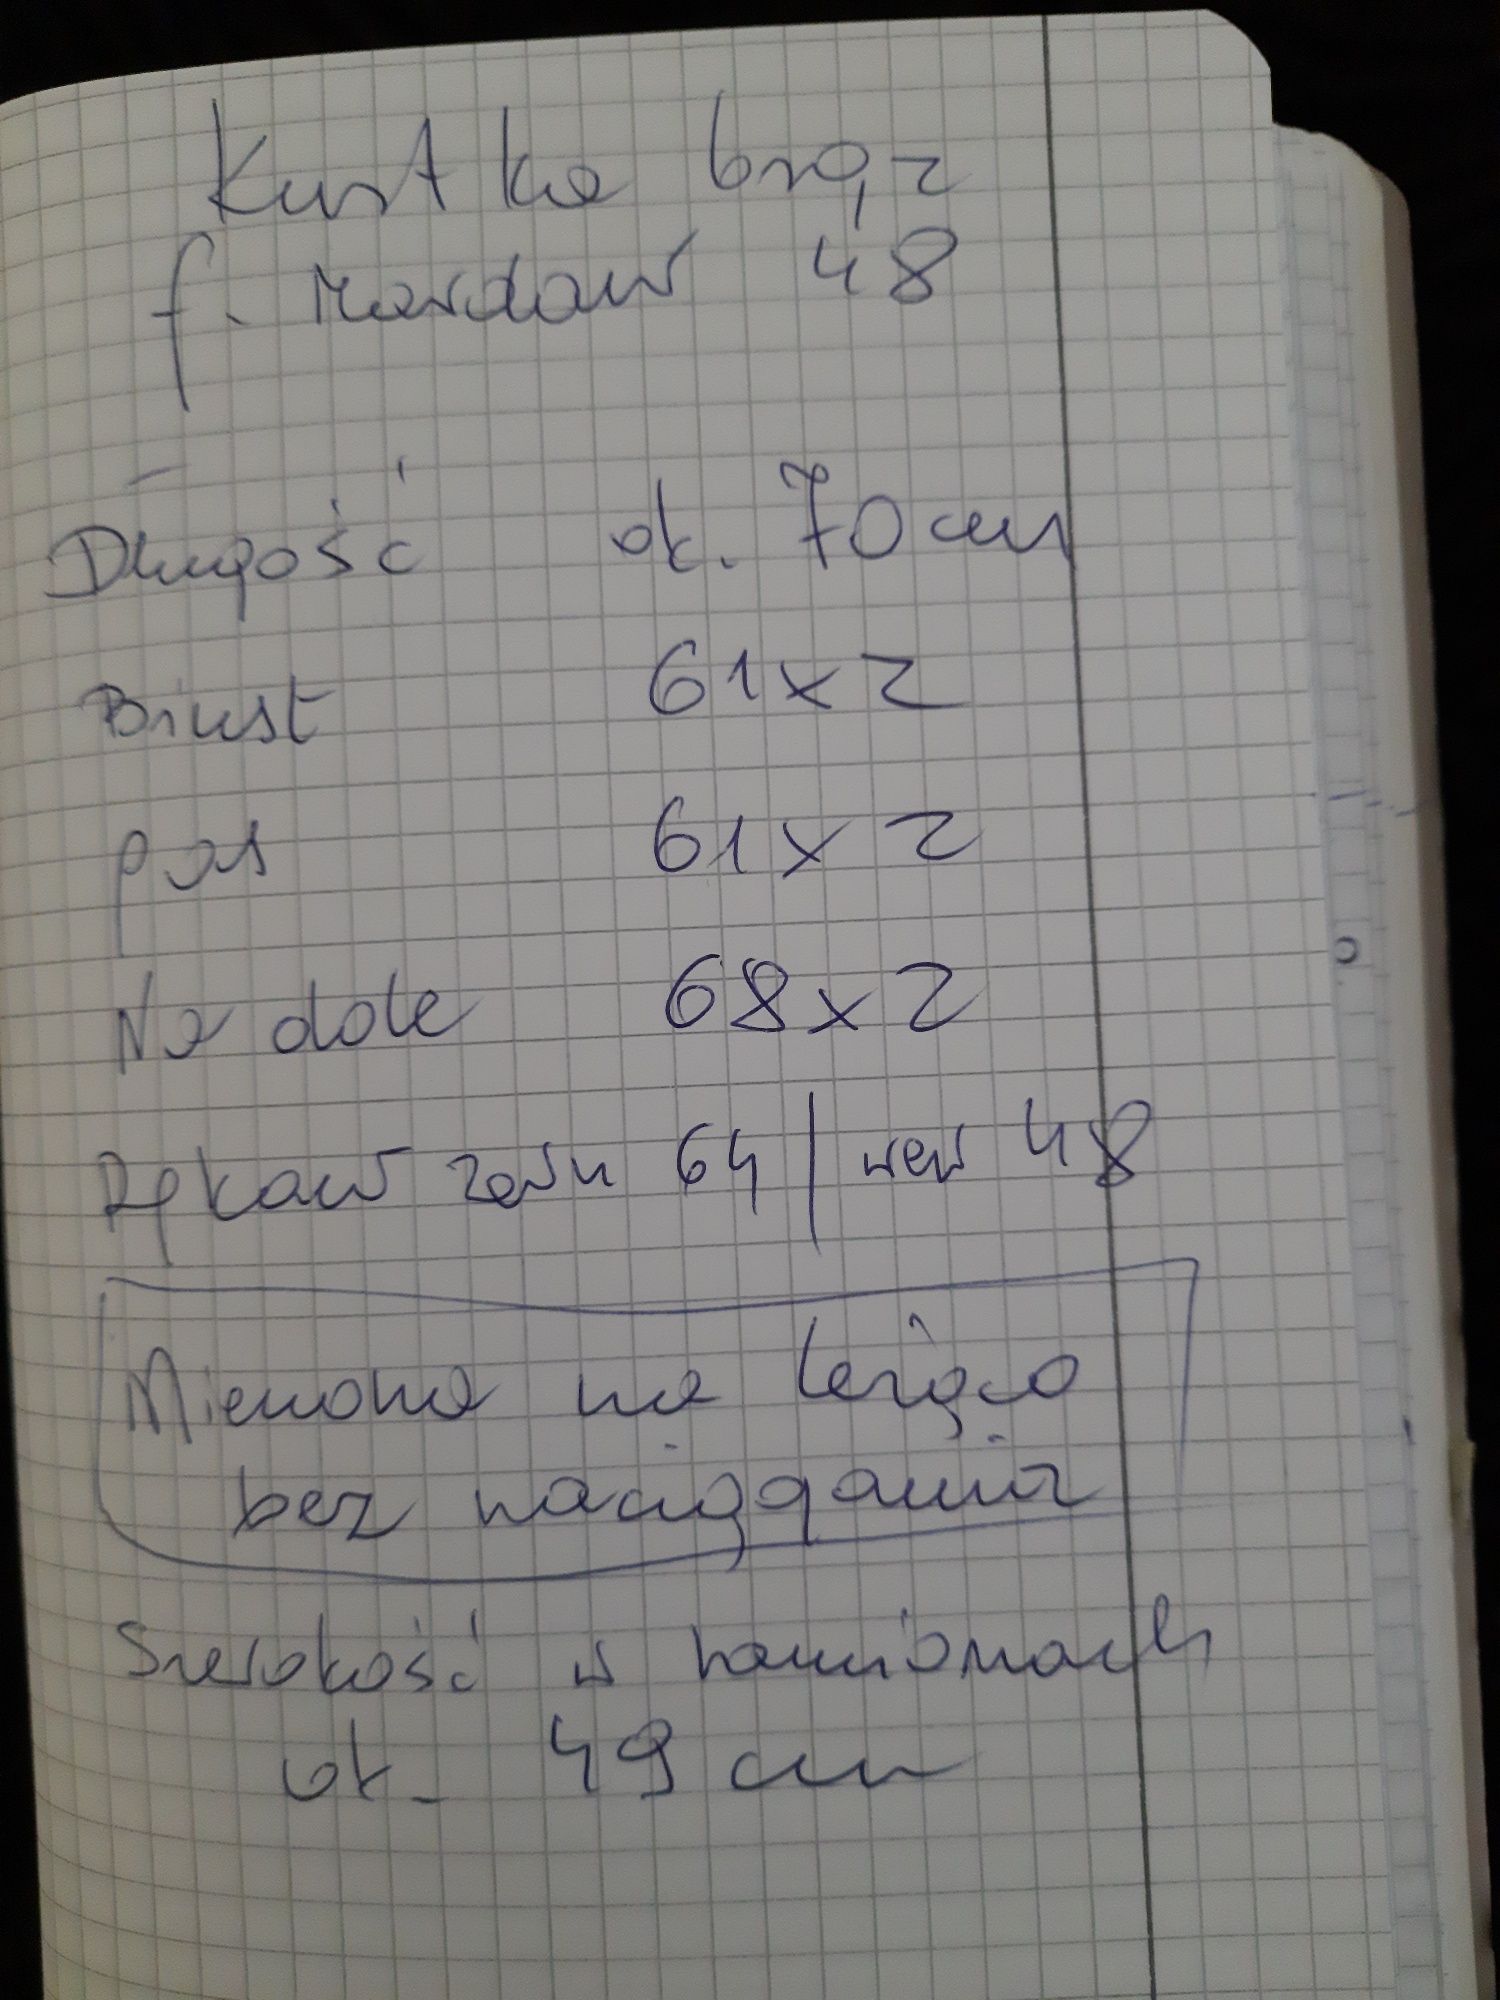 Kurtka brąz
f. Mardaw 48
Długość ok. 70 cm
Biust 61 x 2
pas 61 x 2
Na dole 68 x 2
Rękaw zewn 64 | wew 48
Mierzona na leżąco
bez naciągania
Szerokość w ramionach
ok. 49 cm